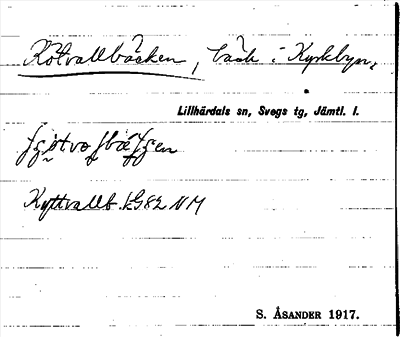 Kötvallbäcken, bäck i Kyrkbyn,
Lillhärdals sn, Svegs tg, Jämtl. l.
Kyttvallb. kG82 NM
S. ÅSANDER 1917.